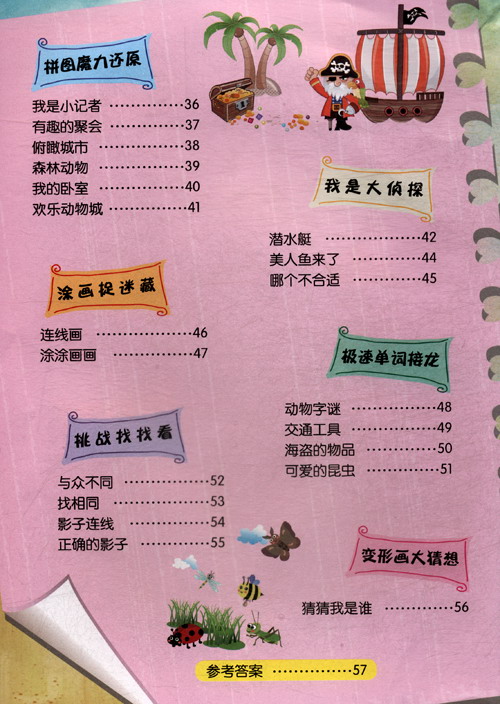 拼图魔力还原
我是小记者 ··············36
有趣的聚会 ·············37
俯瞰城市 ···············38
森林动物 ···············39
我的卧室 ···············40
欢乐动物城 ·············41
我是大侦探
潜水艇 ················42
美人鱼来了 ·············44
哪个不合适 ·············45
涂画捉迷藏
连线画 ················46
涂涂画画 ··············47
极速单词接龙
动物字谜 ··············48
交通工具 ··············49
海盗的物品 ············50
可爱的昆虫 ············51
挑战找找看
与众不同 ··············52
找相同 ················53
影子连线 ··············54
正确的影子 ············55
变形画大猜想
猜猜我是谁 ············56
参考答案 ···············57